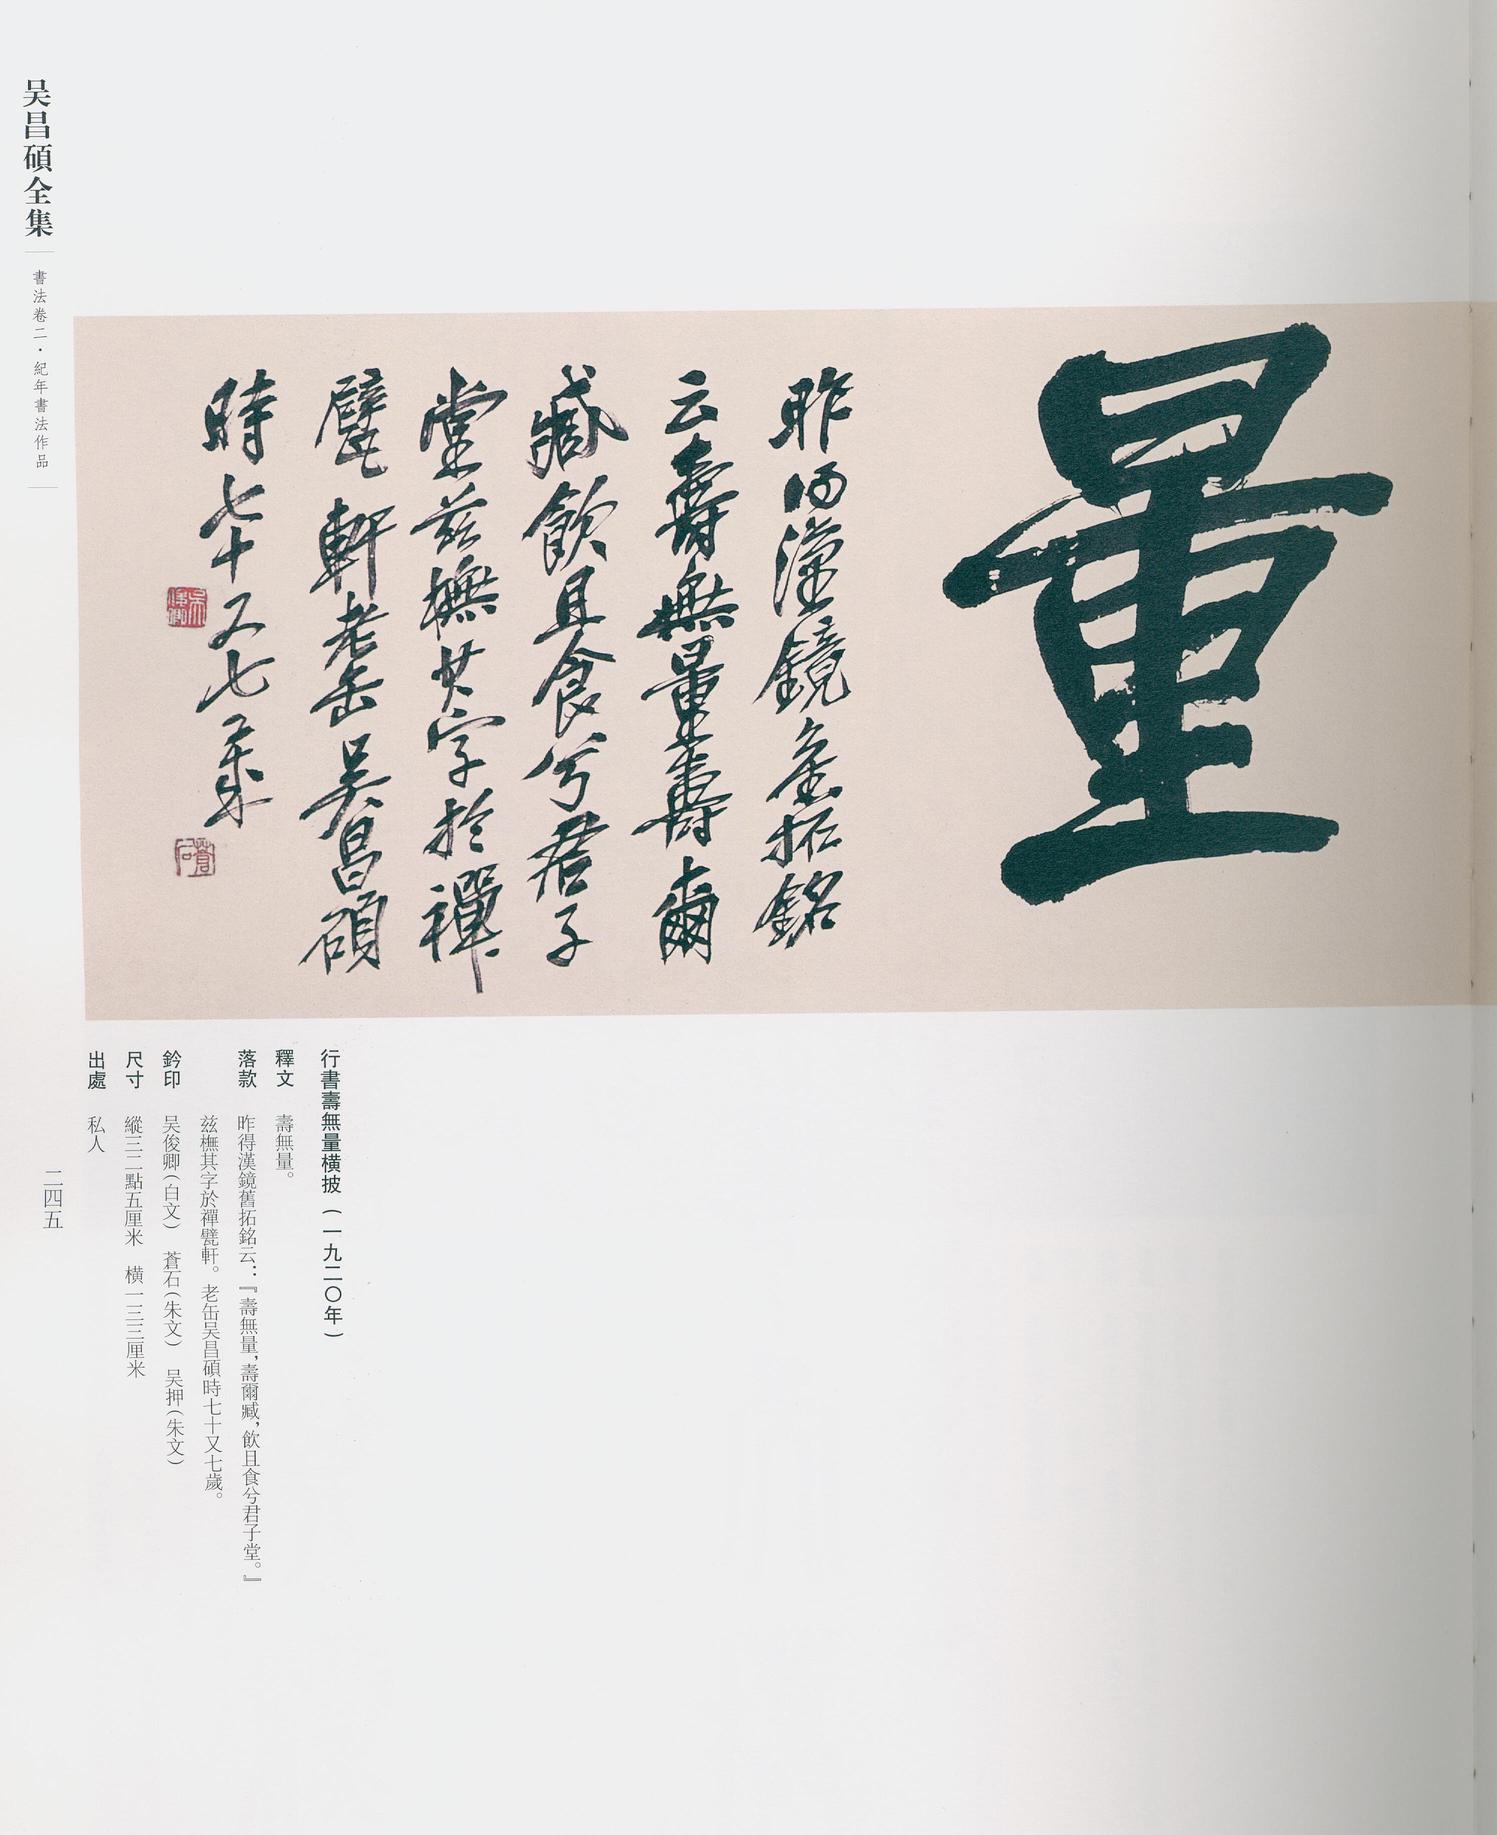 量
昨得漢鏡舊拓銘
云壽無量壽爾
臧飲且食兮君子
堂茲橅其字於禪
甓軒老缶吴昌碩
時七十又七歲
吴俊卿
蒼石
行書壽無量横披（一九二〇年）
釋文 壽無量。
落款 昨得漢鏡舊拓銘云：『壽無量，壽爾臧，飲且食兮君子堂。』
兹橅其字於禪甓軒。老缶吴昌碩時七十又七歲。
鈐印 吴俊卿（白文） 蒼石（朱文） 吴押（朱文）
尺寸 縱三二點五厘米 横一三三厘米
出處 私人
吴昌碩全集
書法卷二・紀年書法作品
二四五